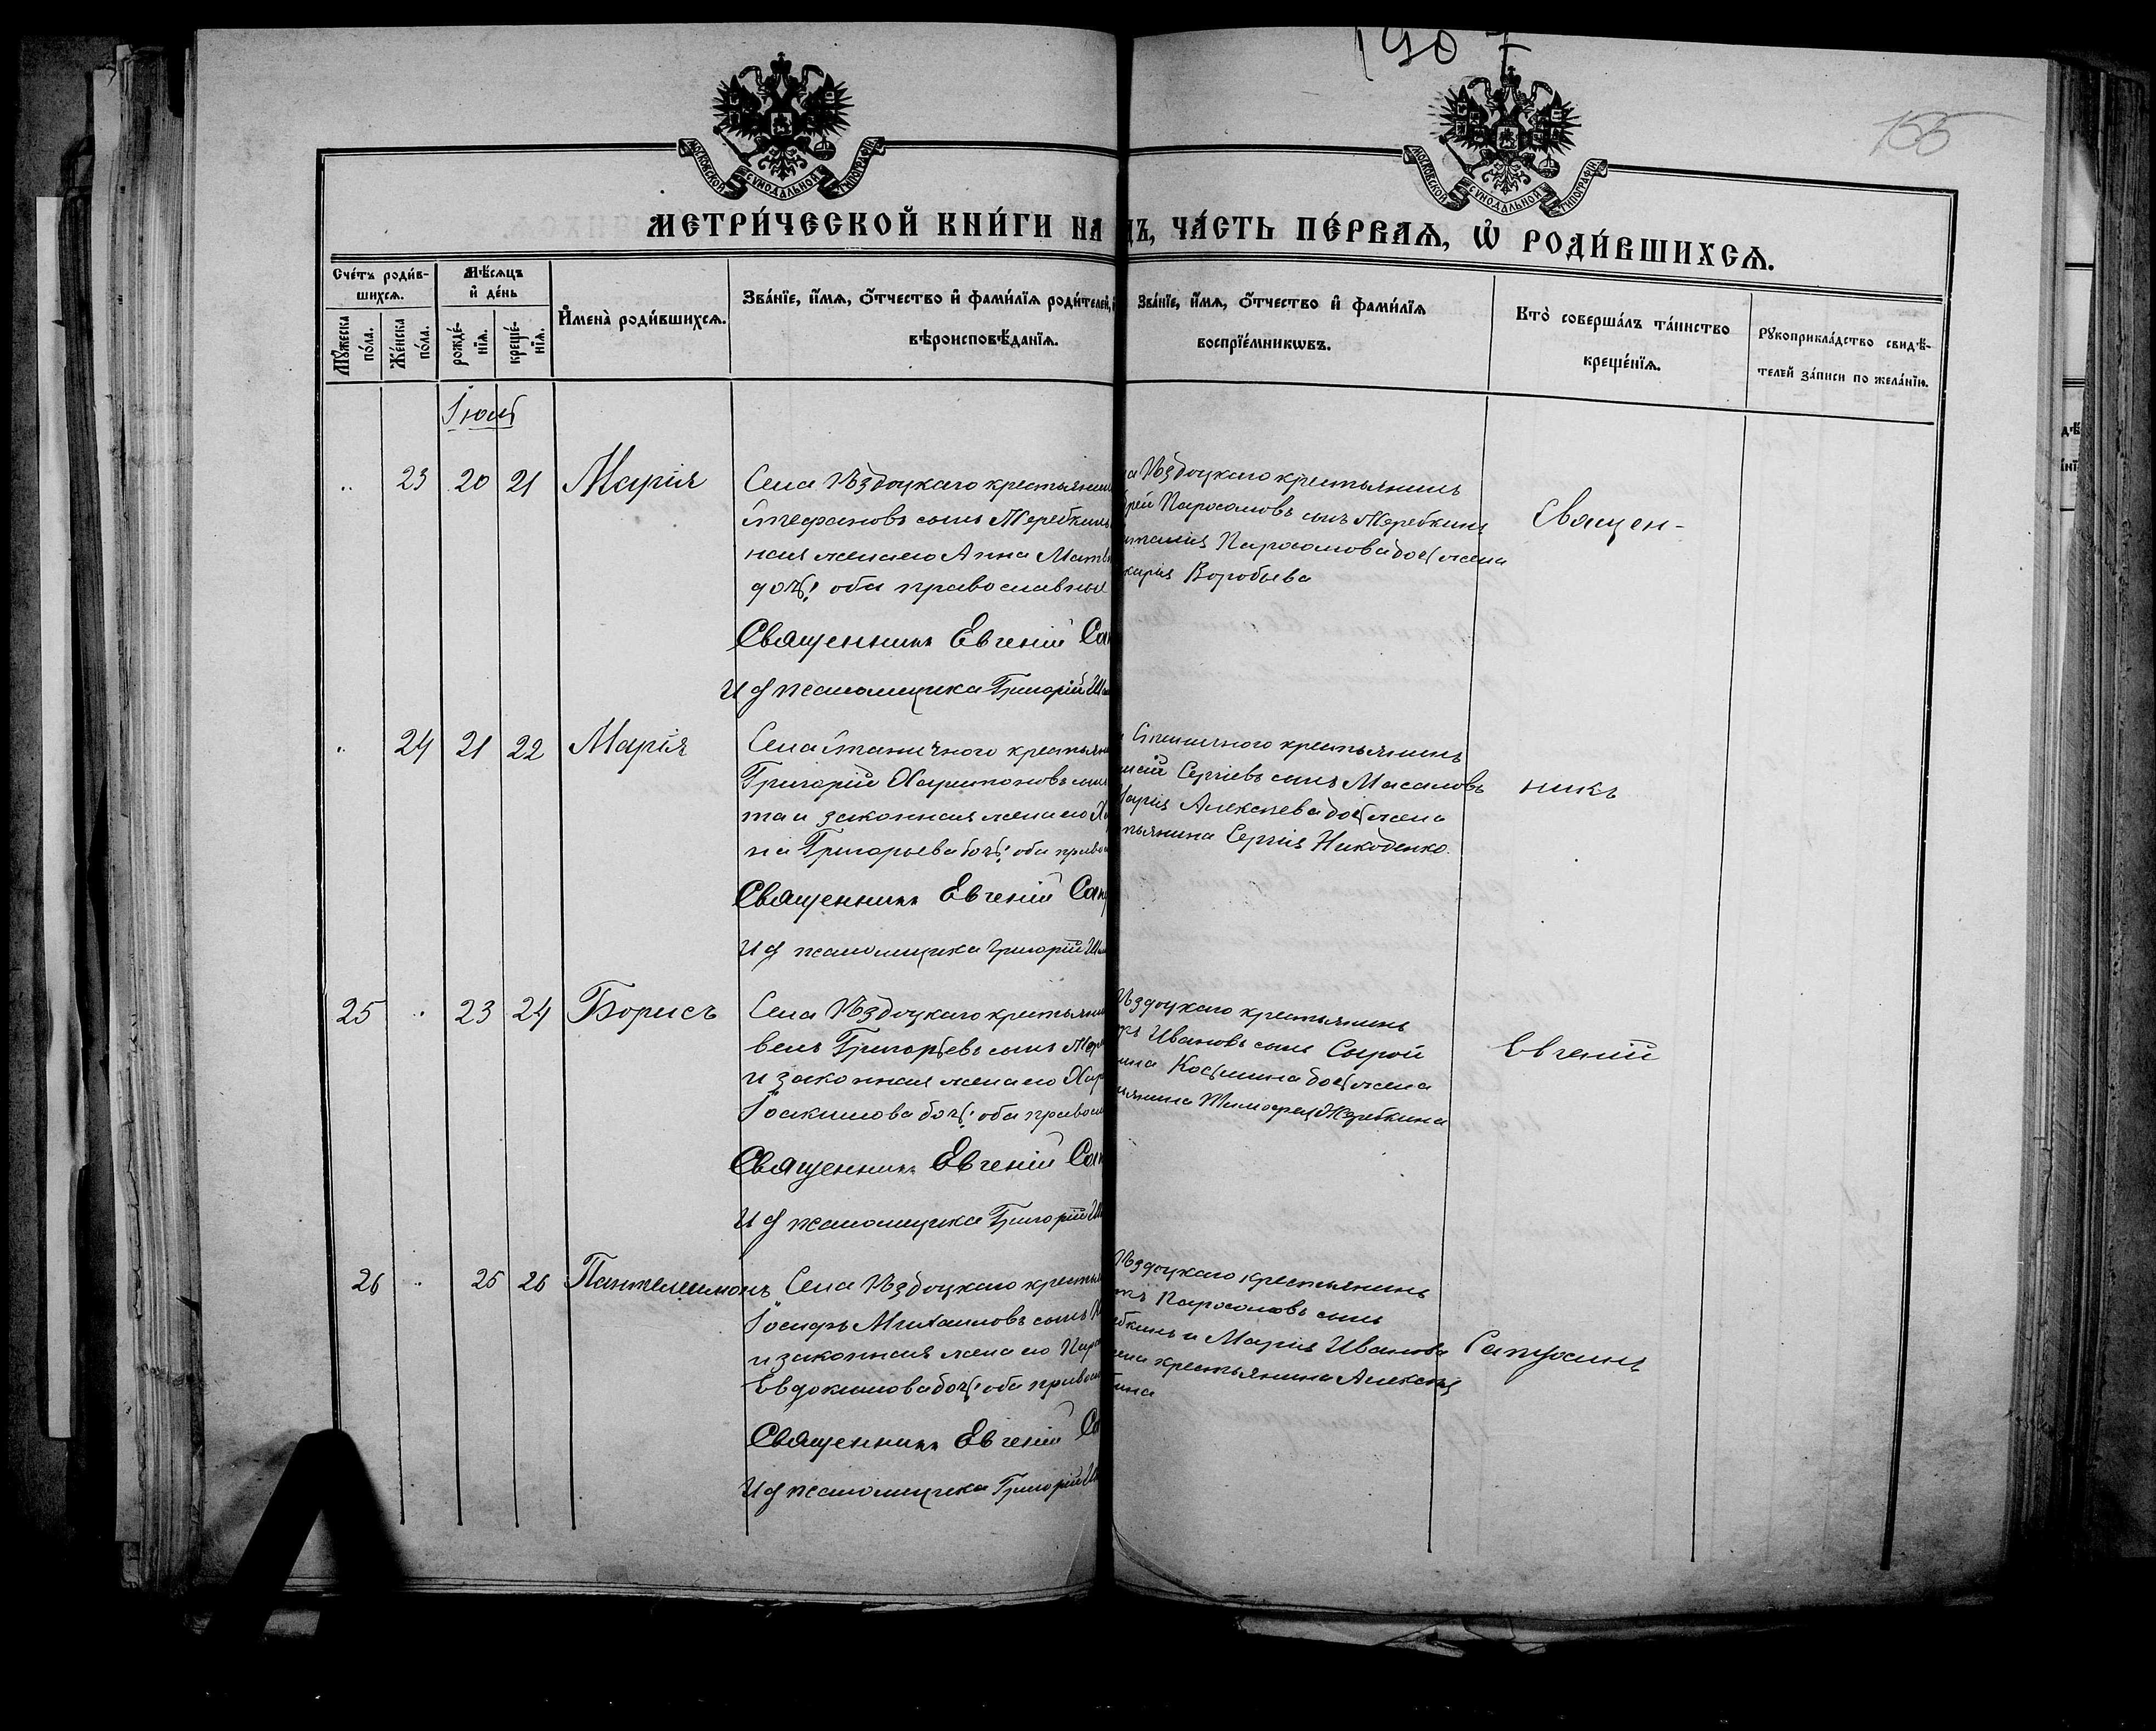 1907
155
МОСКОВСКОЙ СѴНОДАЛЬНОЙ ТИПОГРАФІИ
МОСКОВСКОЙ СѴНОДАЛЬНОЙ ТИПОГРАФІИ
МЕТРИ́ЧЕСКОЙ КНИ́ГИ НА
ДЪ, ЧА́СТЬ ПЕ́РВАѦ, Ѡ҆ РОДИ́ВШИХСѦ.
Сче́тъ роди́в-
шихсѧ.
Мѣ́сѧцъ
и҆ де́нь
Мꙋ́жеска
по́ла.
Же́нска
по́ла.
рожде́-
нїѧ.
креще́-
нїѧ.
И҆мена̀ роди́вшихсѧ.
Зва́нїе, и҆́мѧ, ѻ҆́тчество и҆ фами́лїѧ роди́телей,
вѣроисповѣ́данїѧ.
Зва́нїе, и҆́мѧ, ѻ҆́тчество и҆ фами́лїѧ
воспрїе́мникѡвъ.
Кто̀ соверша́лъ та́инство
креще́нїѧ.
Рꙋкоприкла́дство свидѣ́-
телей за́писи по жела́нїю.
Іюль
23 20 21 Марія
Села Ѣздоцкаго крестьянин
Стефановъ сынъ Жеребкинъ
ная жена его Анна Матв
дочь; оба православные
Священникъ Евгеній Сап
И д псаломщика Григорій
а Ѣздоцкаго крестьянинъ
рей Парѳеновъ сынъ Жеребкинъ
Парѳенова дочь жена
Воробьева
Священ-
24 21 22 Марія
Села Станичного крестьян
Григорій Харитоновъ сын
та и законная жена его
на Григорьева дочь; оба право
Священникъ Евгеній Сап
И д псаломщика Григорій
Станичного крестьянинъ
Сергіевъ сынъ Масаловъ
Марія Алексѣева дочь жена
тьянина Сергія Никоденко.
никъ
25 23 24 Борисъ
Села Ѣздоцкаго крестьян
велъ Григорьевъ сынъ Жер
и законная жена его
Іоакимова дочь; оба правосл
Священникъ Евгеній Сап
И д псаломщика Григорій
Ѣздоцкаго крестьянинъ
Ивановъ сынъ Сырой
Косьмина дочь жена
янина Тимофея Жеребкина
Евгеній
26 25 26 Пантелеимонъ
Села Ѣздоцкаго крестья
Іосифъ Михаиловъ сынъ
и законная жена его Пара
Евдокимова дочь; оба правосл
Священникъ Евгеній Са
И д псаломщика Григорій
Ѣздоцкаго крестьянинъ
Парѳеновъ сынъ
бкинъ и Марія Иванова
жена крестьянина Алексѣя
Сапухинъ